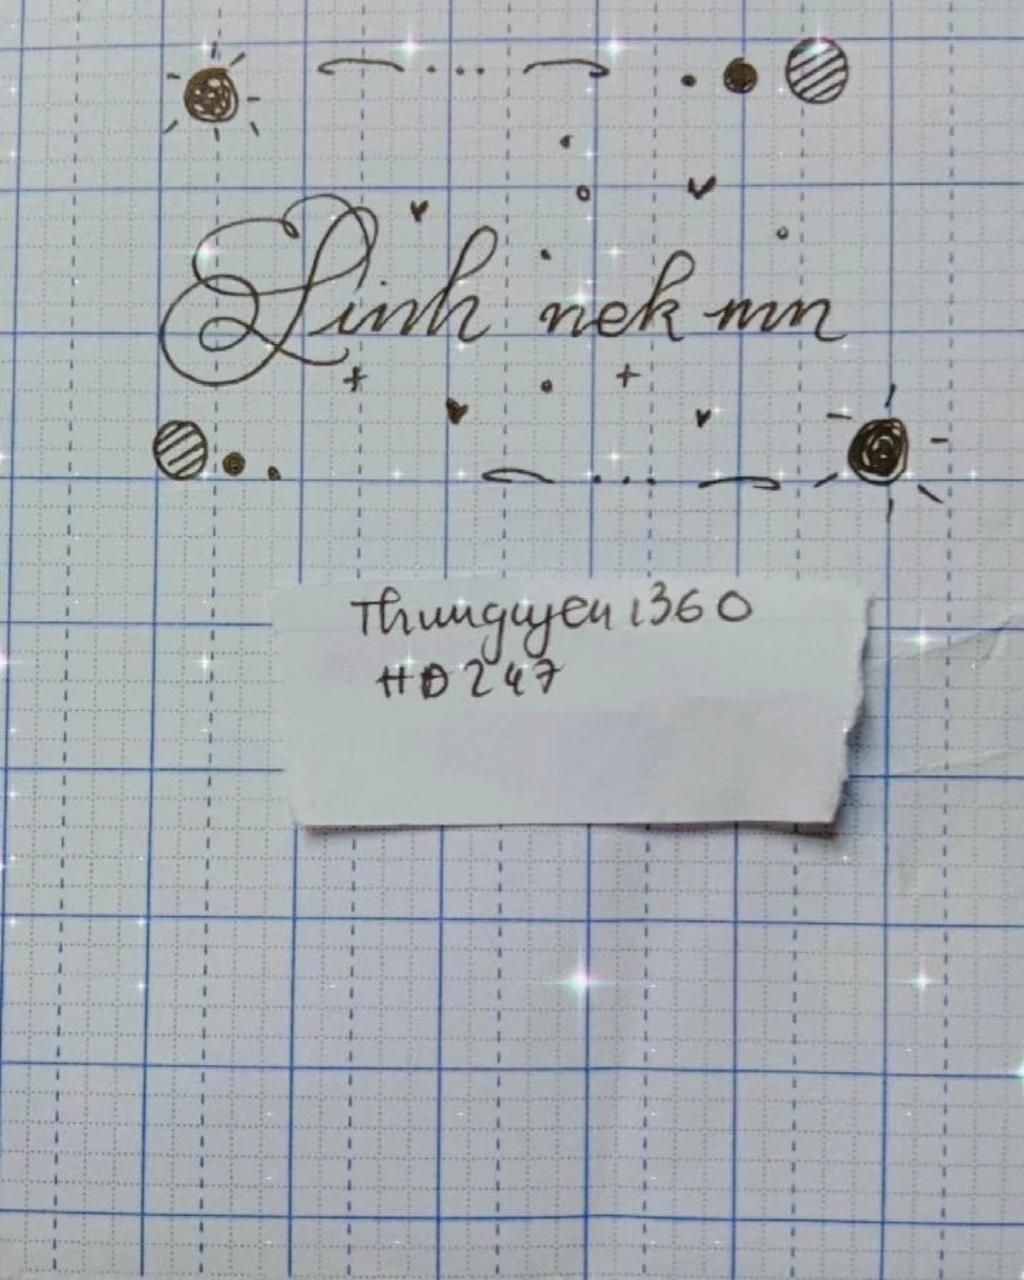 Linh nek mn
Thunguyen 1360
HD 247